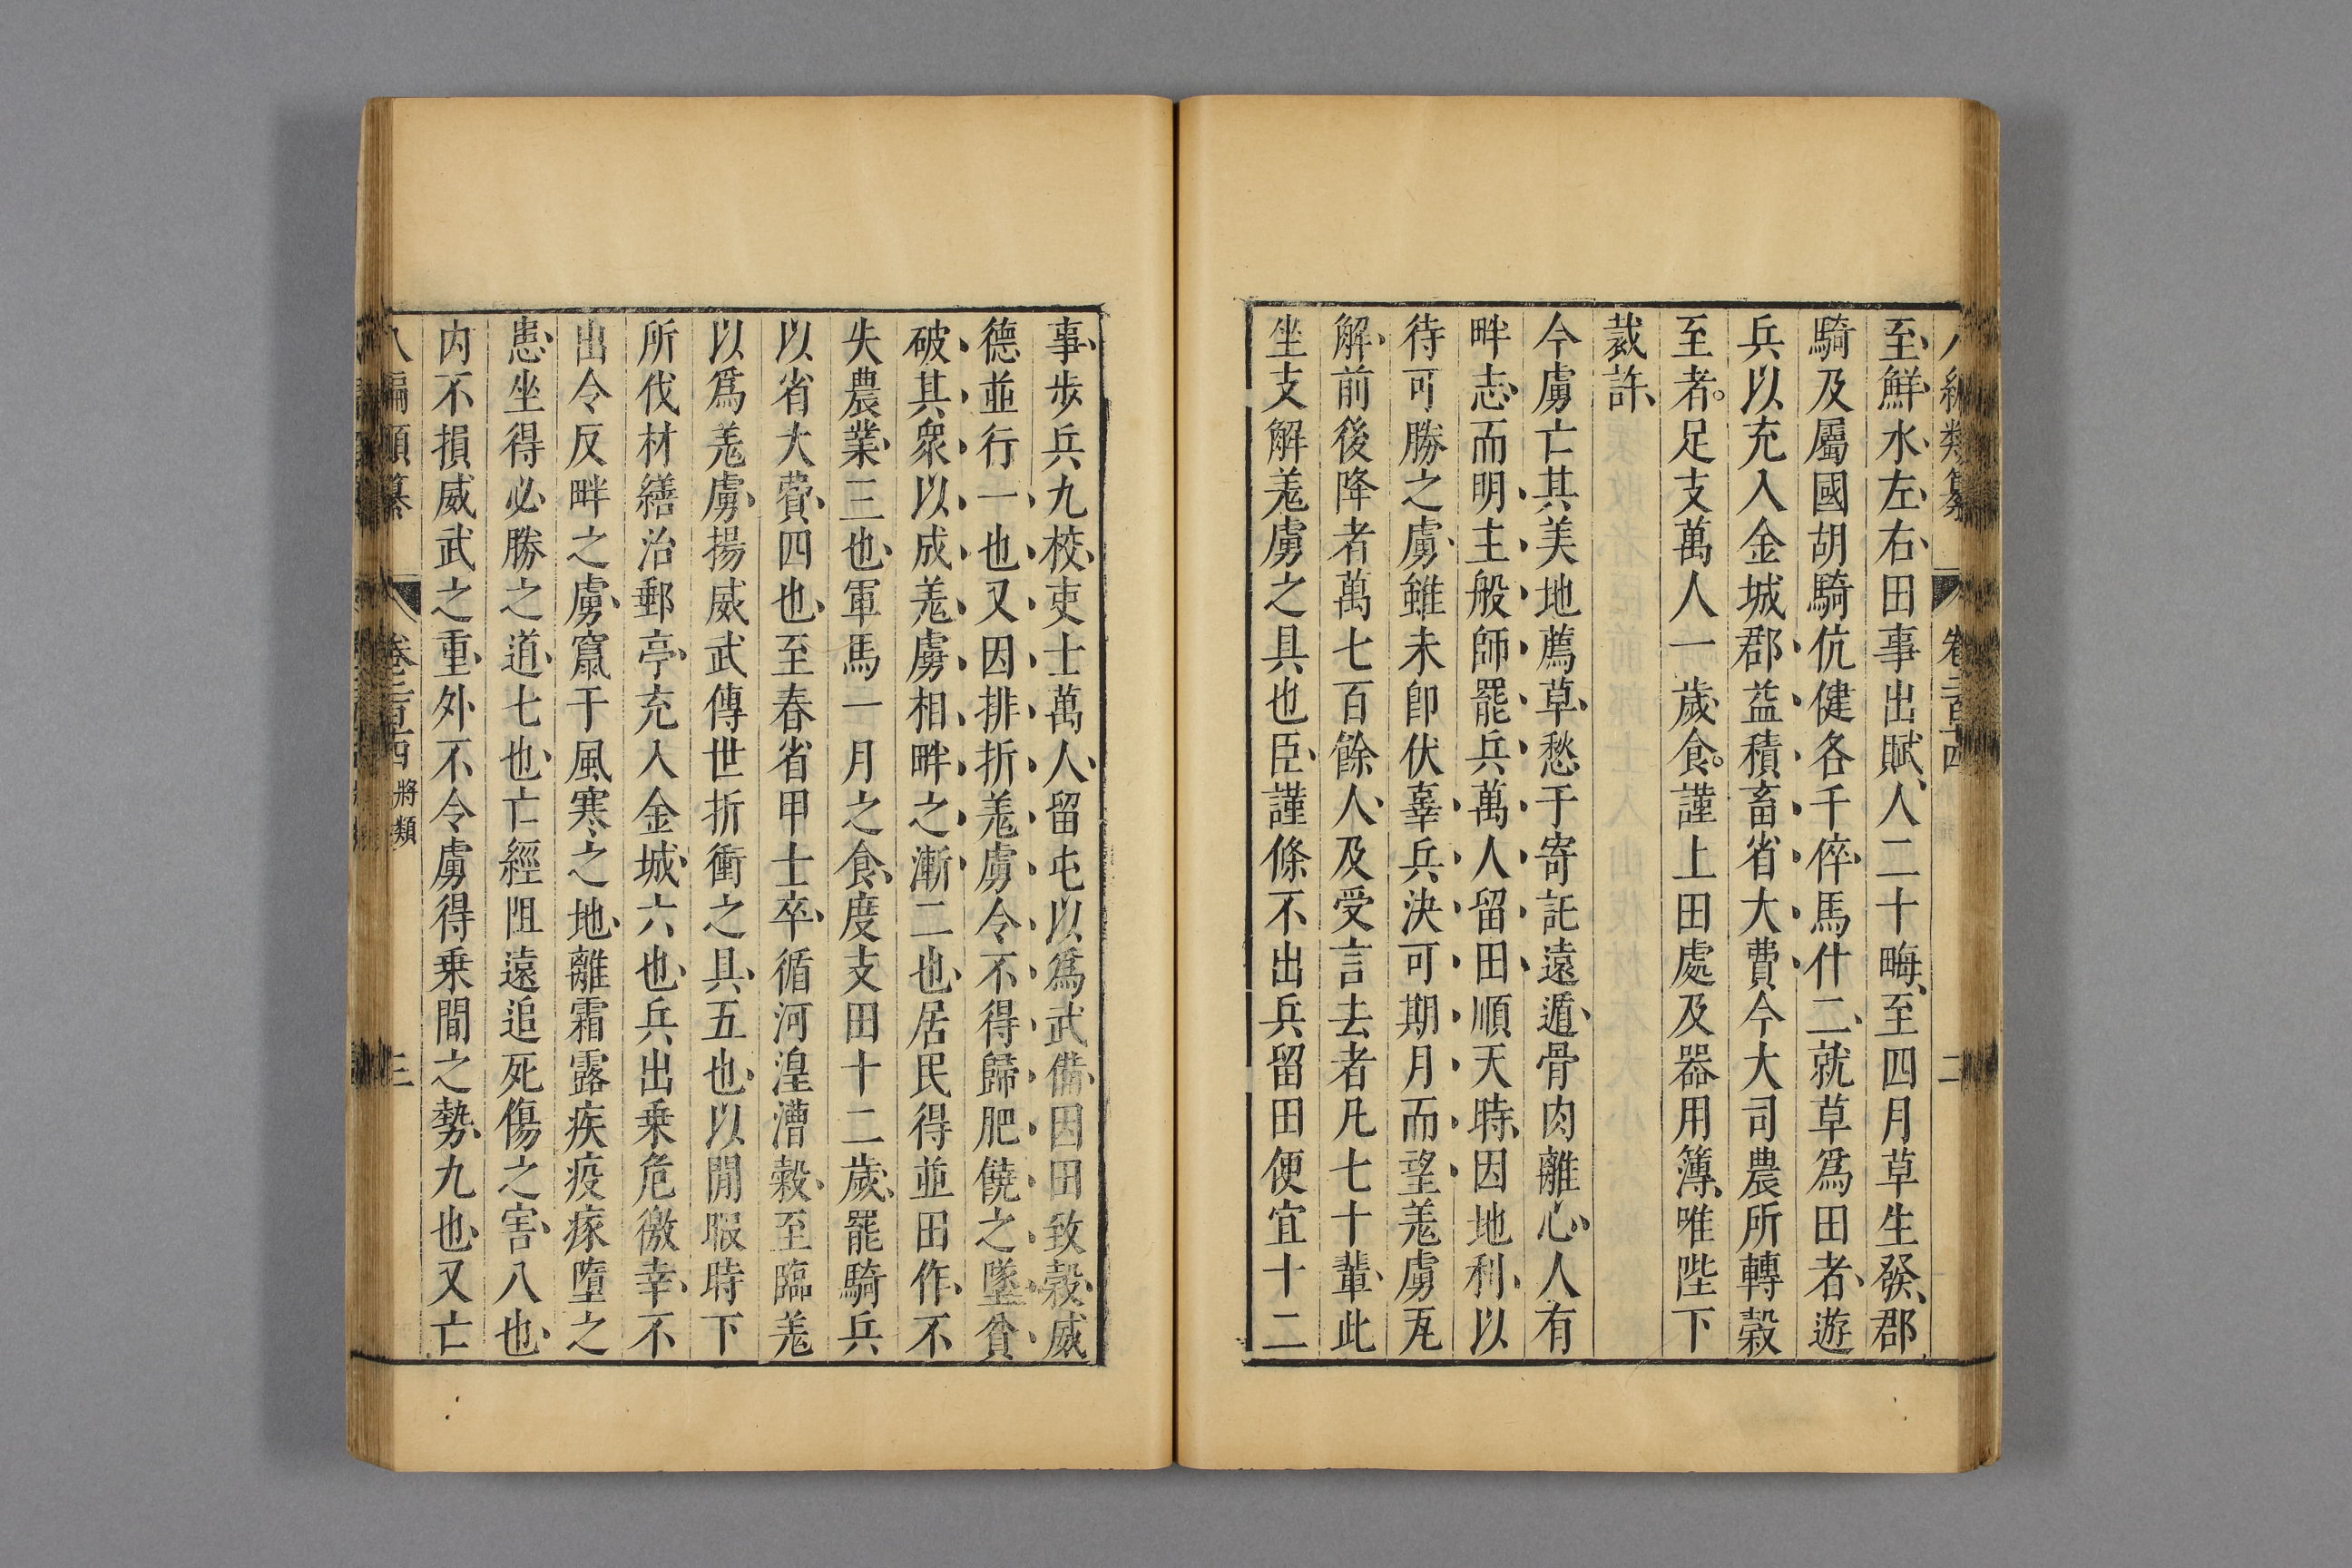 至鮮水左右田事出賦人二十畮至四月草生發郡
騎及屬國胡騎伉健各千倅馬什二就草爲田者遊
兵以充入金城郡益積畜省大費今大司農所轉穀
至者足支萬人一歲食謹上田處及器用簿唯陛下
裁許
今虜亡其美地薦草愁于寄託遠遁骨肉離心人有
畔志而明主般師罷兵萬人留田順天時因地利以
待可勝之虜雖未卽伏辜兵決可期月而望羗虜瓦
解前後降者萬七百餘人及受言去者凡七十輩此
坐支解羗虜之具也臣謹條不出兵留田便宜十二
事步兵九校吏士萬人留屯以爲武備因田致穀威
德並行一也又因排折羗虜令不得歸肥饒之墜貧
破其衆以成羗虜相畔之漸二也居民得並田作不
失農業三也軍馬一月之食度支田十二歲罷騎兵
以省大費四也至春省甲士卒循河湟漕穀至臨羗
以爲羗虜揚威武傳世折衝之具五也以閒暇時下
所伐材繕治郵亭充入金城六也兵出乗危徼幸不
出令反畔之虜竄于風寒之地離霜露疾疫瘃墮之
患坐得必勝之道七也亡經阻遠追死傷之害八也
内不損威武之重外不令虜得乗間之勢九也又亡
八編類纂 卷二百四 將類 三